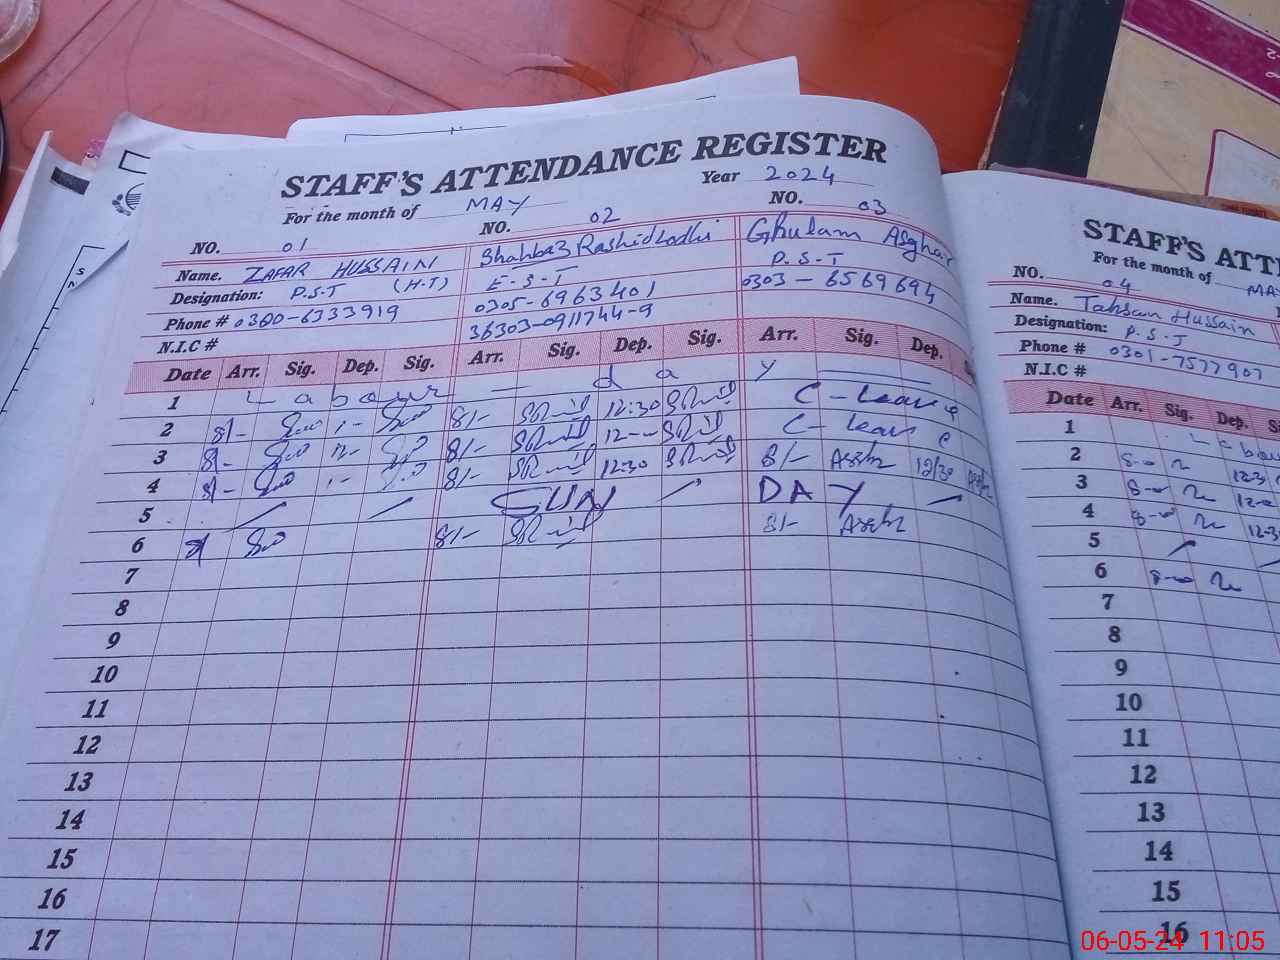 STAFF'S ATTENDANCE REGISTER
For the month of MAY Year 2024
NO. 01 NO. 02 NO. 03
Name. ZAFAR HUSSAIN Shahbaz Rashid Lodhi Ghulam Asghar
Designation: P.S.T (H.T) E-S-T P.S.T
Phone # 0300-6333919 0305-6963401 0303-6569694
N.I.C # 36303-0911744-9
Date Arr. Sig. Dep. Sig. Arr. Sig. Dep. Arr. Sig. Dep.
1 Labour — day —
2 8/- 1-- 8/- 12:30 C-Leave
3 8/- 12-- 8/- 12-- C-Leave
4 8/- 1-- 8/- 12:30 8/- 12/30
5 SUN DAY
6 8/- 8/-
7
8
9
10
11
12
13
14
15
16
17
STAFF'S ATTE
For the month of MA
NO. 04
Name. Tahsan Hussain
Designation: P.S.T
Phone # 0301-7577907
N.I.C #
Date Arr. Sig. Dep.
1 Labou
2 8-00
3 8-00
4 8-00
5
6 8-00
7
8
9
10
11
12
13
14
15
16
06-05-24 11:05